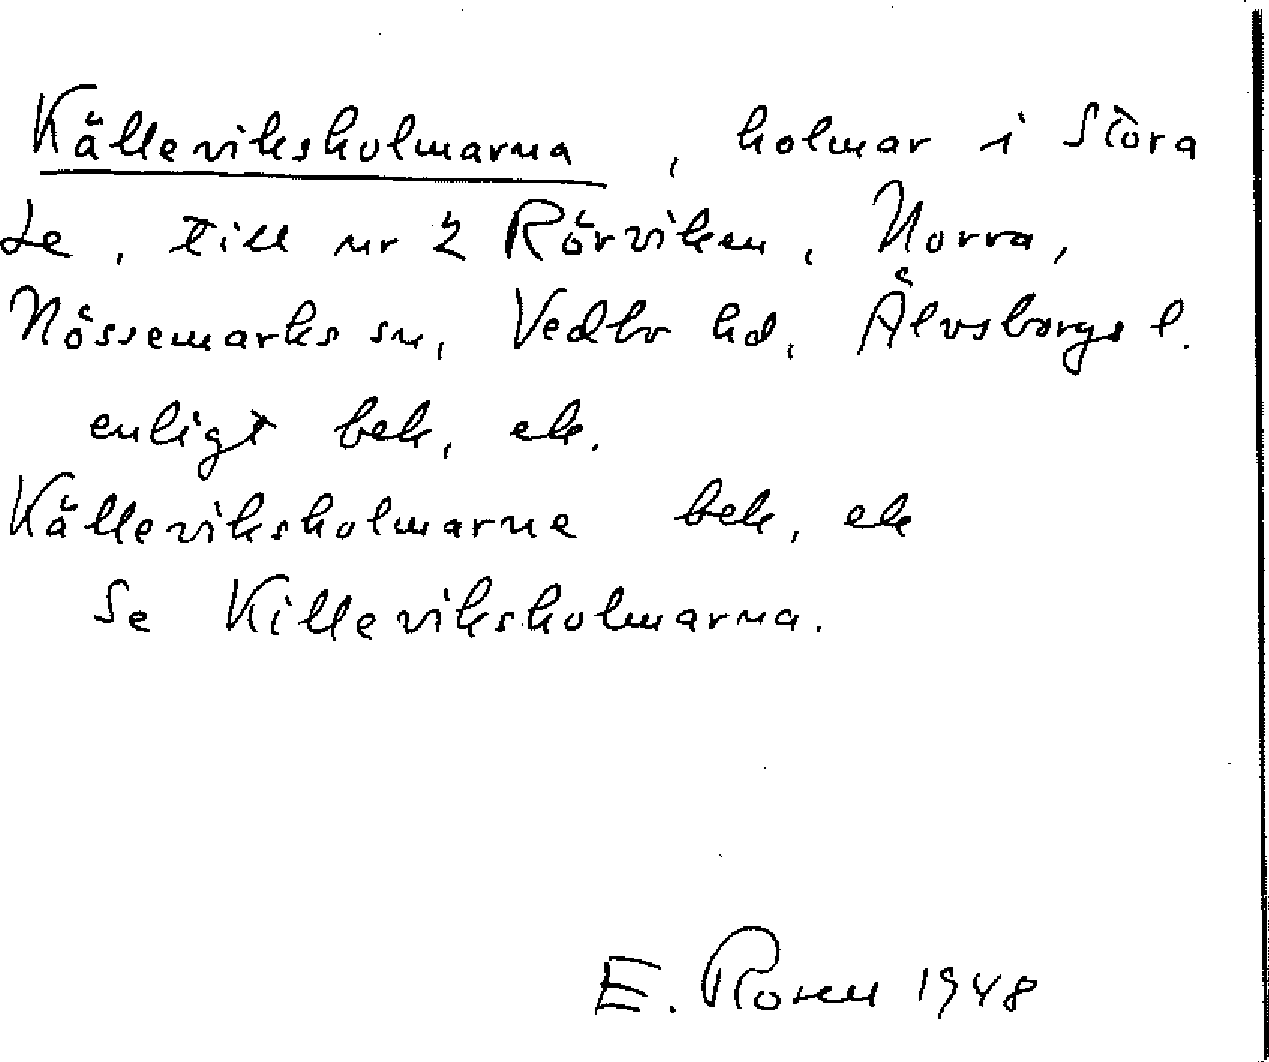 Källeviksholmarna, holmar i Stora
Le, till nr 2 Rörviken, Norra,
Nössemarks sn, Vedbo hd, Älvsborgs l.
enligt bek, ek.
Källeviksholmarne bek, ek
Se Killeviksholmarna.
E. Rosen 1948